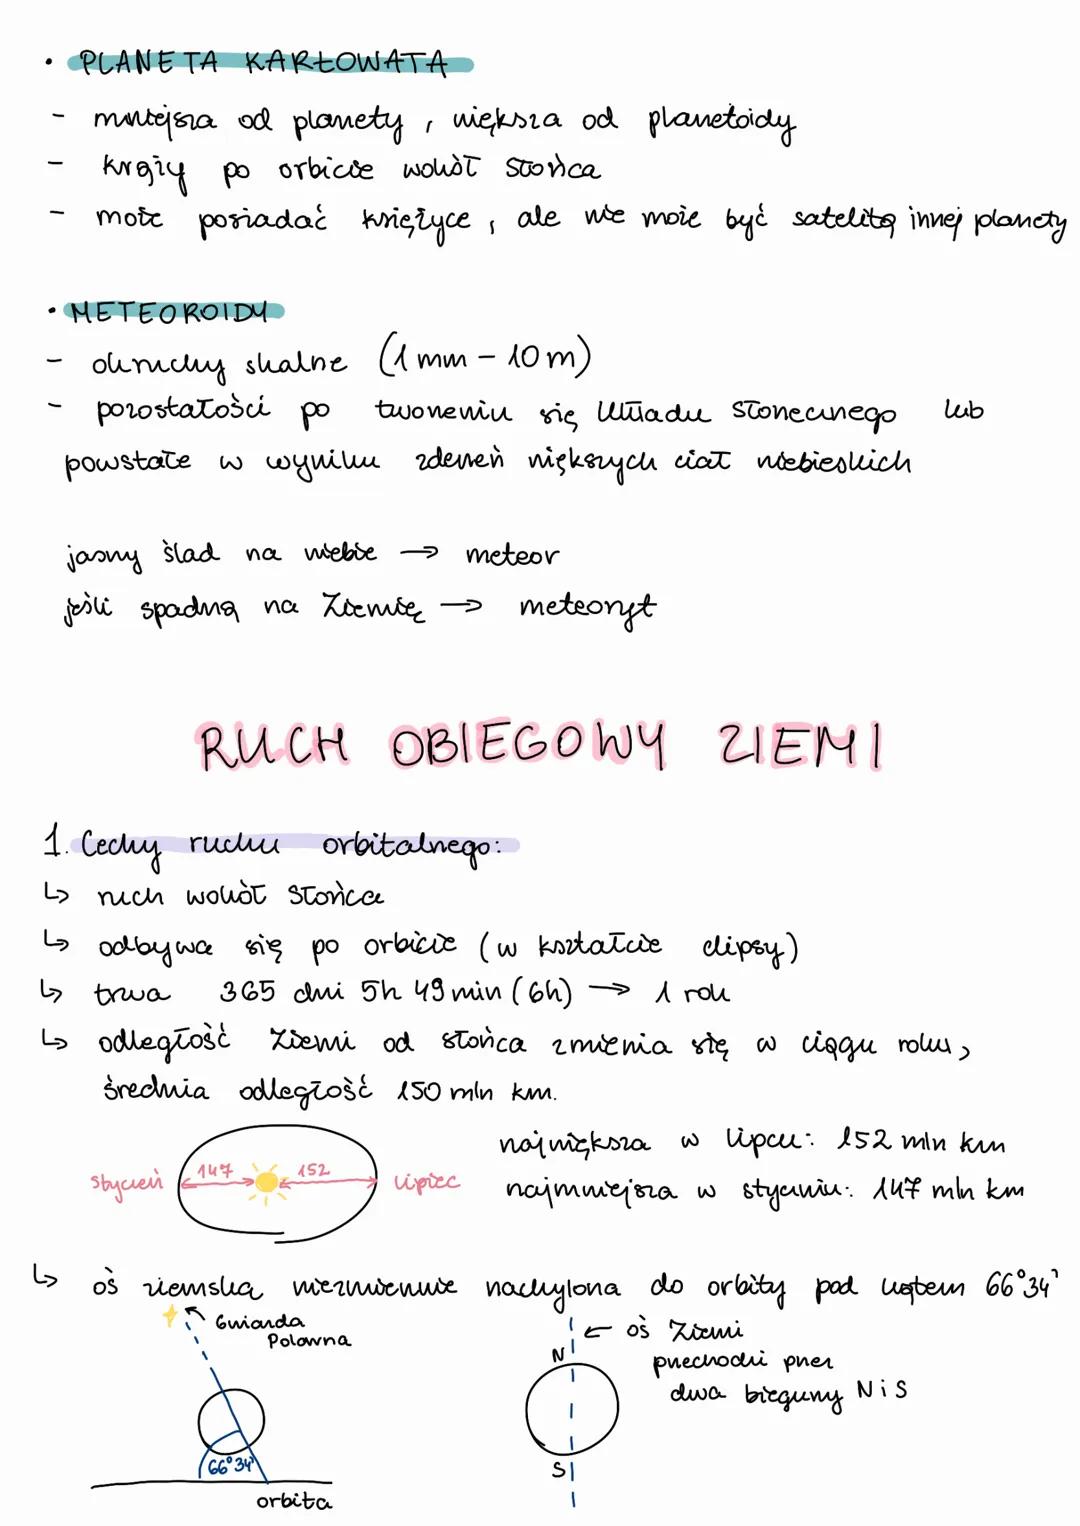 · PLANETA KARŁOWATA
- mniejsza od planety, większa od planetoidy
- krąży po orbicie wokół Słońca
- może posiadać księżyce, ale nie może być satelitą innej planety
· METEOROIDY
- okruchy skalne (1 mm – 10 m)
- pozostałości po tworzeniu się Układu Słonecznego lub
powstałe w wyniku zderzeń większych ciał niebieskich
jasny ślad na niebie → meteor
jeśli spadną na Ziemię → meteoryt
RUCH OBIEGOWY ZIEMI
1. Cechy ruchu orbitalnego:
↳ ruch wokół Słońca
↳ odbywa się po orbicie (w kształcie elipsy)
↳ trwa 365 dni 5h 49 min (6h) → 1 rok
↳ odległość Ziemi od słońca zmienia się w ciągu roku,
średnia odległość 150 mln km.
największa w lipcu: 152 mln km
styczeń 147 152 lipiec
najmniejsza w styczniu: 147 mln km
↳ oś ziemska niezmiennie nachylona do orbity pod kątem 66°34'
Gwiazda
Polarna
66°34'
orbita
← oś Ziemi
przechodzi przez
dwa bieguny N i S
N
S